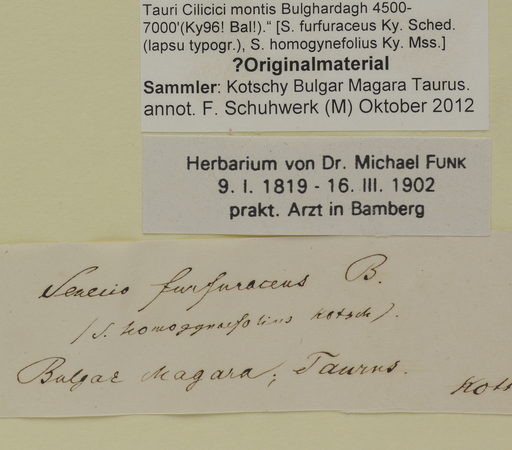 Tauri Cilicici montis Bulghardagh 4500-
7000'(Ky96! Bal!).“ [S. furfuraceus Ky. Sched.
(lapsu typogr.), S. homogynefolius Ky. Mss.]
?Originalmaterial
Sammler: Kotschy Bulgar Magara Taurus.
annot. F. Schuhwerk (M) Oktober 2012
Herbarium von Dr. Michael FUNK
9. I. 1819 - 16. III. 1902
prakt. Arzt in Bamberg
Senecio furfuraceus B.
(S. homogynaefolius Kotsch).
Bulgar Magara, Taurus.
Kots